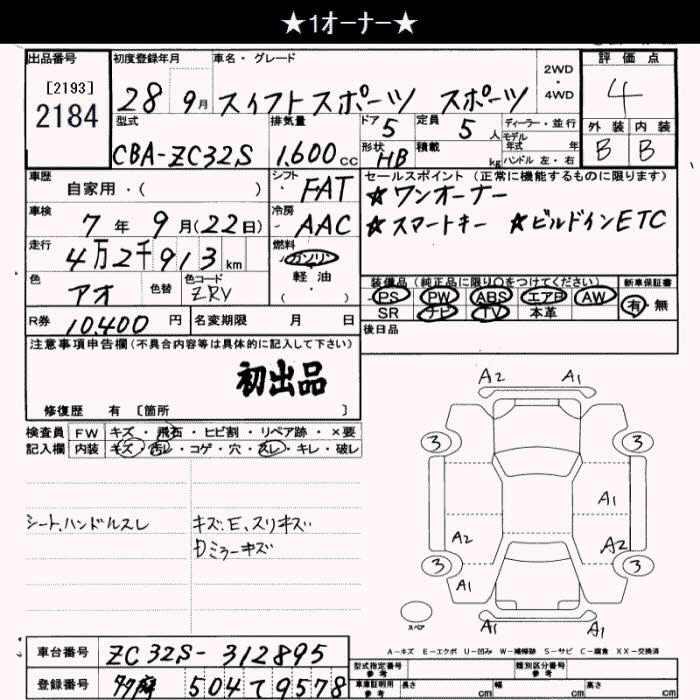 ★1オーナー★
出品番号
[2193]
2184
初度登録年月
28 9月
車名・グレード
スイフトスポーツ スポーツ
2WD
・
4WD
評価点
4
外装 内装
B B
型式
CBA-ZC32S
排気量
1.600cc
ドア 5
形状 HB
定員 5人
積載 kg
ディーラー・並行
モデル
年式 年
ハンドル 左・右
車歴
自家用・( )
シフト
FAT
セールスポイント (正常に機能するものに限ります)
★ワンオーナー
★スマートキー ★ビルドインETC
車検
7年9月(22日)
冷房
AAC
走行
4万2千913km
燃料
ガソリン
軽・油
( ・ )
色
アオ
色替
色コード
ZRV
装備品 (純正品に限り○をつけてください)
PS PW ABS エアB AW
SR ナビ TV 本革
新車保証書
有・無
R券 10.400円
名変期限 月 日
後日品
注意事項申告欄(不具合内容等は具体的に記入して下さい)
初出品
修復歴 有 [箇所 ]
検査員 FW キズ・飛石・ヒビ割・リペア跡・×要
記入欄 内装 キズ・汚レ・コゲ・穴・スレ・キレ・破レ
シート、ハンドルスレ
キズ、E、スリキズ
ミラーキズ
A2 A1
3 3
A1
A2 A2
3 3
A1
スペア
A1 A2
A-キズ E-エクボ U-凹み W-補修跡 S-サビ C-腐食 XX-交換済
車台番号 ZC32S-312895
登録番号 504 9578
型式指定番号
参考
類別区分番号
参考
車庫証明用
参考
長さ cm 幅 cm 高さ cm